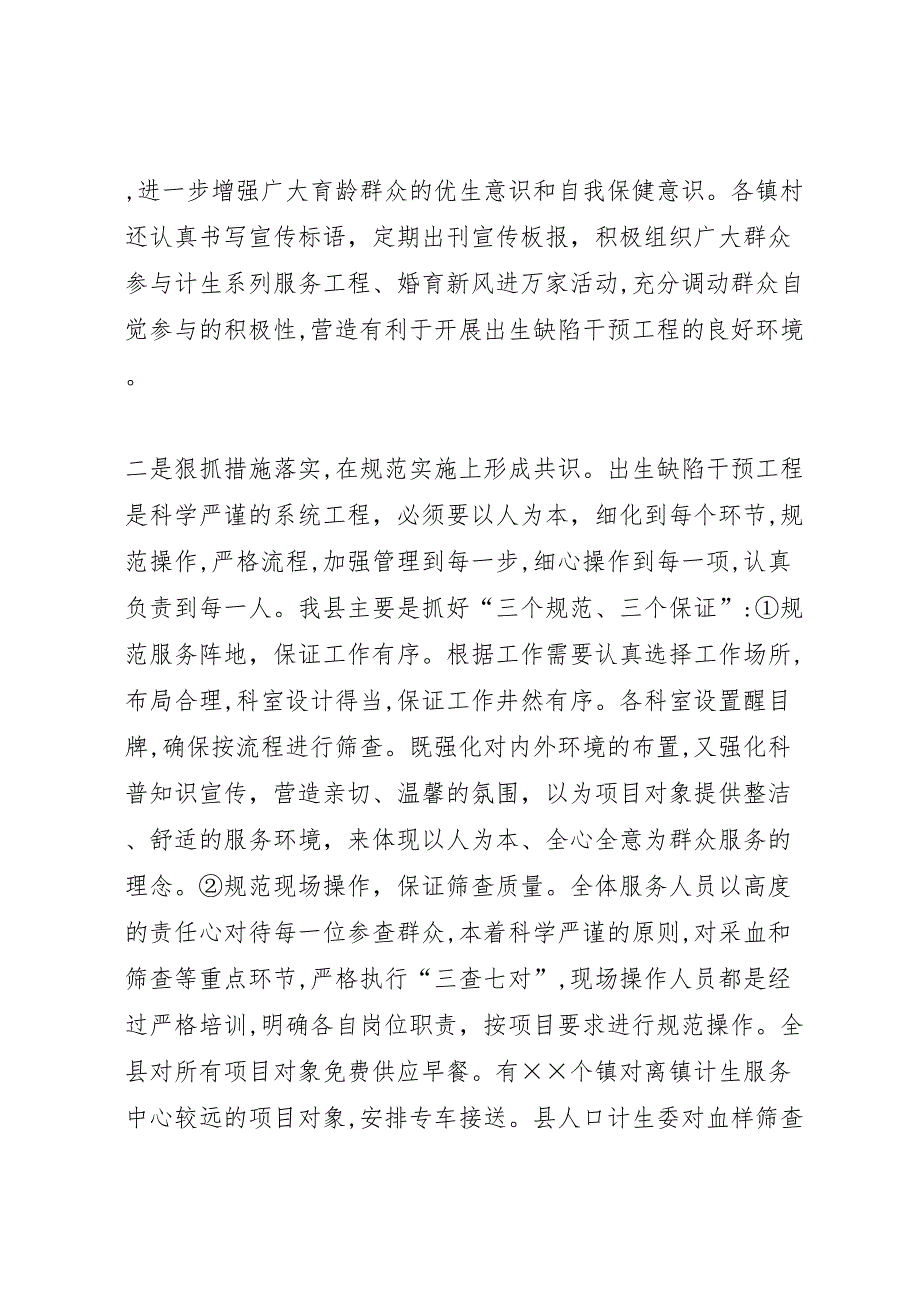 ,进一步增强广大育龄群众的优生意识和自我保健意识。各镇村
还认真书写宣传标语，定期出刊宣传板报，积极组织广大群众
参与计生系列服务工程、婚育新风进万家活动,充分调动群众自
觉参与的积极性,营造有利于开展出生缺陷干预工程的良好环境
。
二是狠抓措施落实,在规范实施上形成共识。出生缺陷干预工程
是科学严谨的系统工程，必须要以人为本，细化到每个环节,规
范操作,严格流程,加强管理到每一步,细心操作到每一项,认真
负责到每一人。我县主要是抓好“三个规范、三个保证”:①规
范服务阵地，保证工作有序。根据工作需要认真选择工作场所,
布局合理,科室设计得当,保证工作井然有序。各科室设置醒目
牌,确保按流程进行筛查。既强化对内外环境的布置,又强化科
普知识宣传，营造亲切、温馨的氛围，以为项目对象提供整洁
、舒适的服务环境，来体现以人为本、全心全意为群众服务的
理念。②规范现场操作，保证筛查质量。全体服务人员以高度
的责任心对待每一位参查群众,本着科学严谨的原则,对采血和
筛查等重点环节,严格执行“三查七对”,现场操作人员都是经
过严格培训,明确各自岗位职责，按项目要求进行规范操作。全
县对所有项目对象免费供应早餐。有××个镇对离镇计生服务
中心较远的项目对象,安排专车接送。县人口计生委对血样筛查